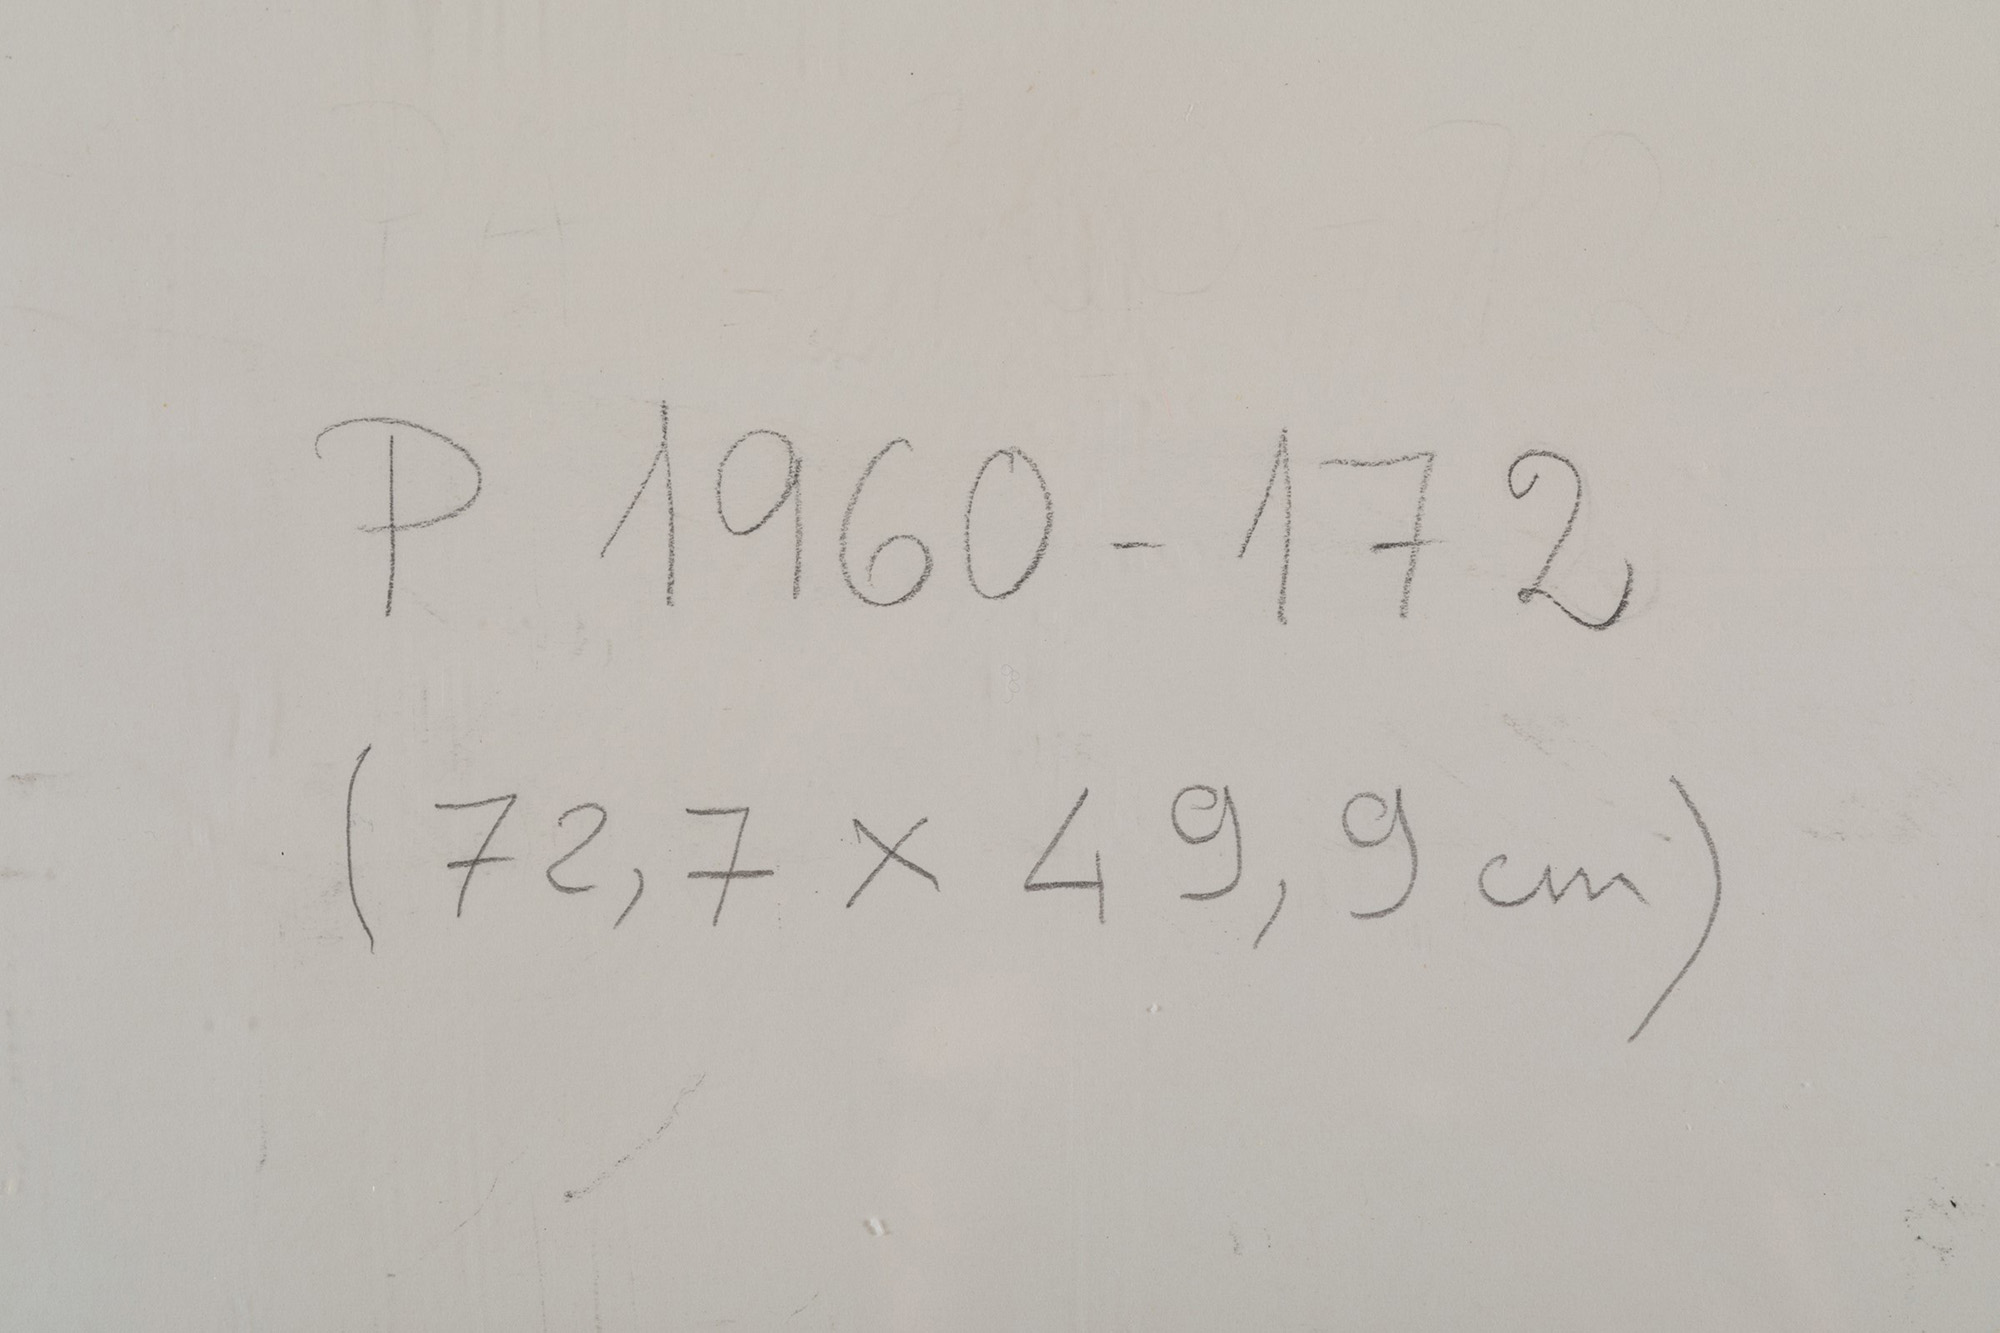 P 1960-172
(72,7 x 49,9 cm)